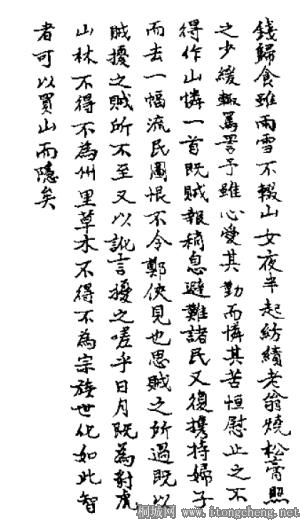 錢歸食雖雨雪不輟山女夜半起紡績老翁燒松膏照
之少緩輒罵詈予雖心愛其勤而憐其苦恒慰止之不
得作山憐一首既賊報稍息避難諸民又復攜持婦子
而去一幅流民圖恨不令鄭俠見也思賊之所過既以
賊擾之賊所不至又以訛言擾之嗟乎日月既為豺虎
山林不得不為州里草木不得不為宗族世化如此智
者可以買山而隱矣
桐城网 www.itongcheng.net